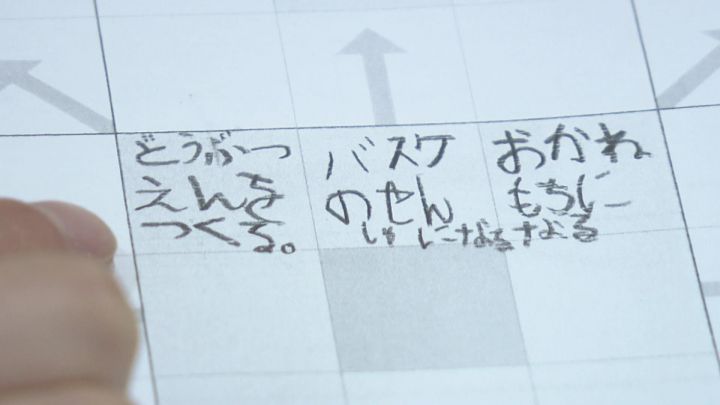 どうぶつ
えんを
つくる。
バスケ
のせん
しゅになる
おかね
もちに
なる